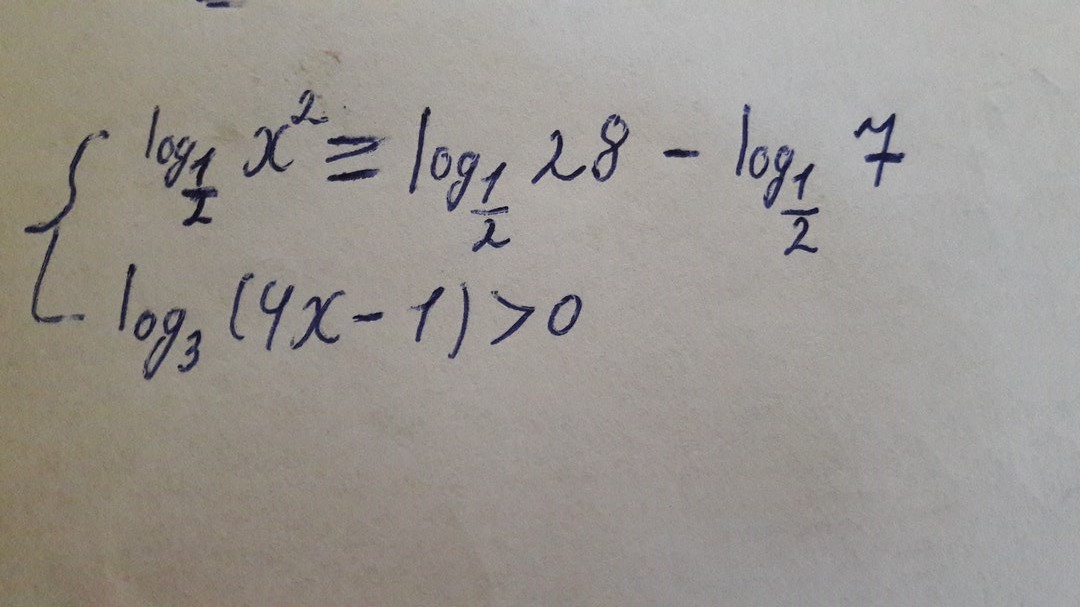 log_{1/2} x² ≥ log_{1/2} 28 - log_{1/2} 7
log₃ (4x - 1) > 0